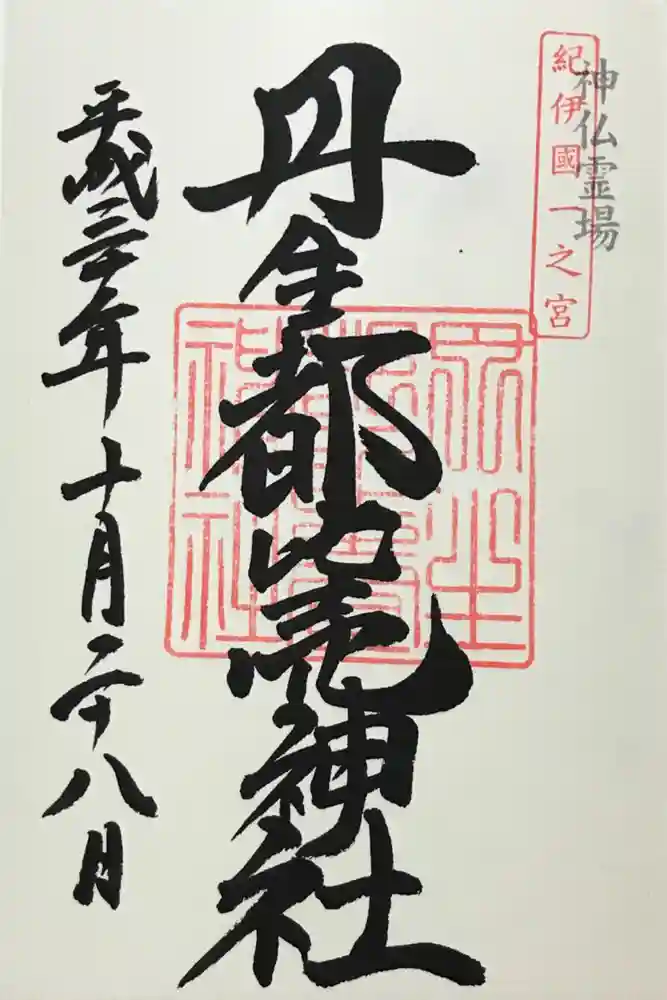 神仏霊場
紀伊國一之宮
丹生都比売神社
丹生
都比賣
神社
平成三十年十月二十八日